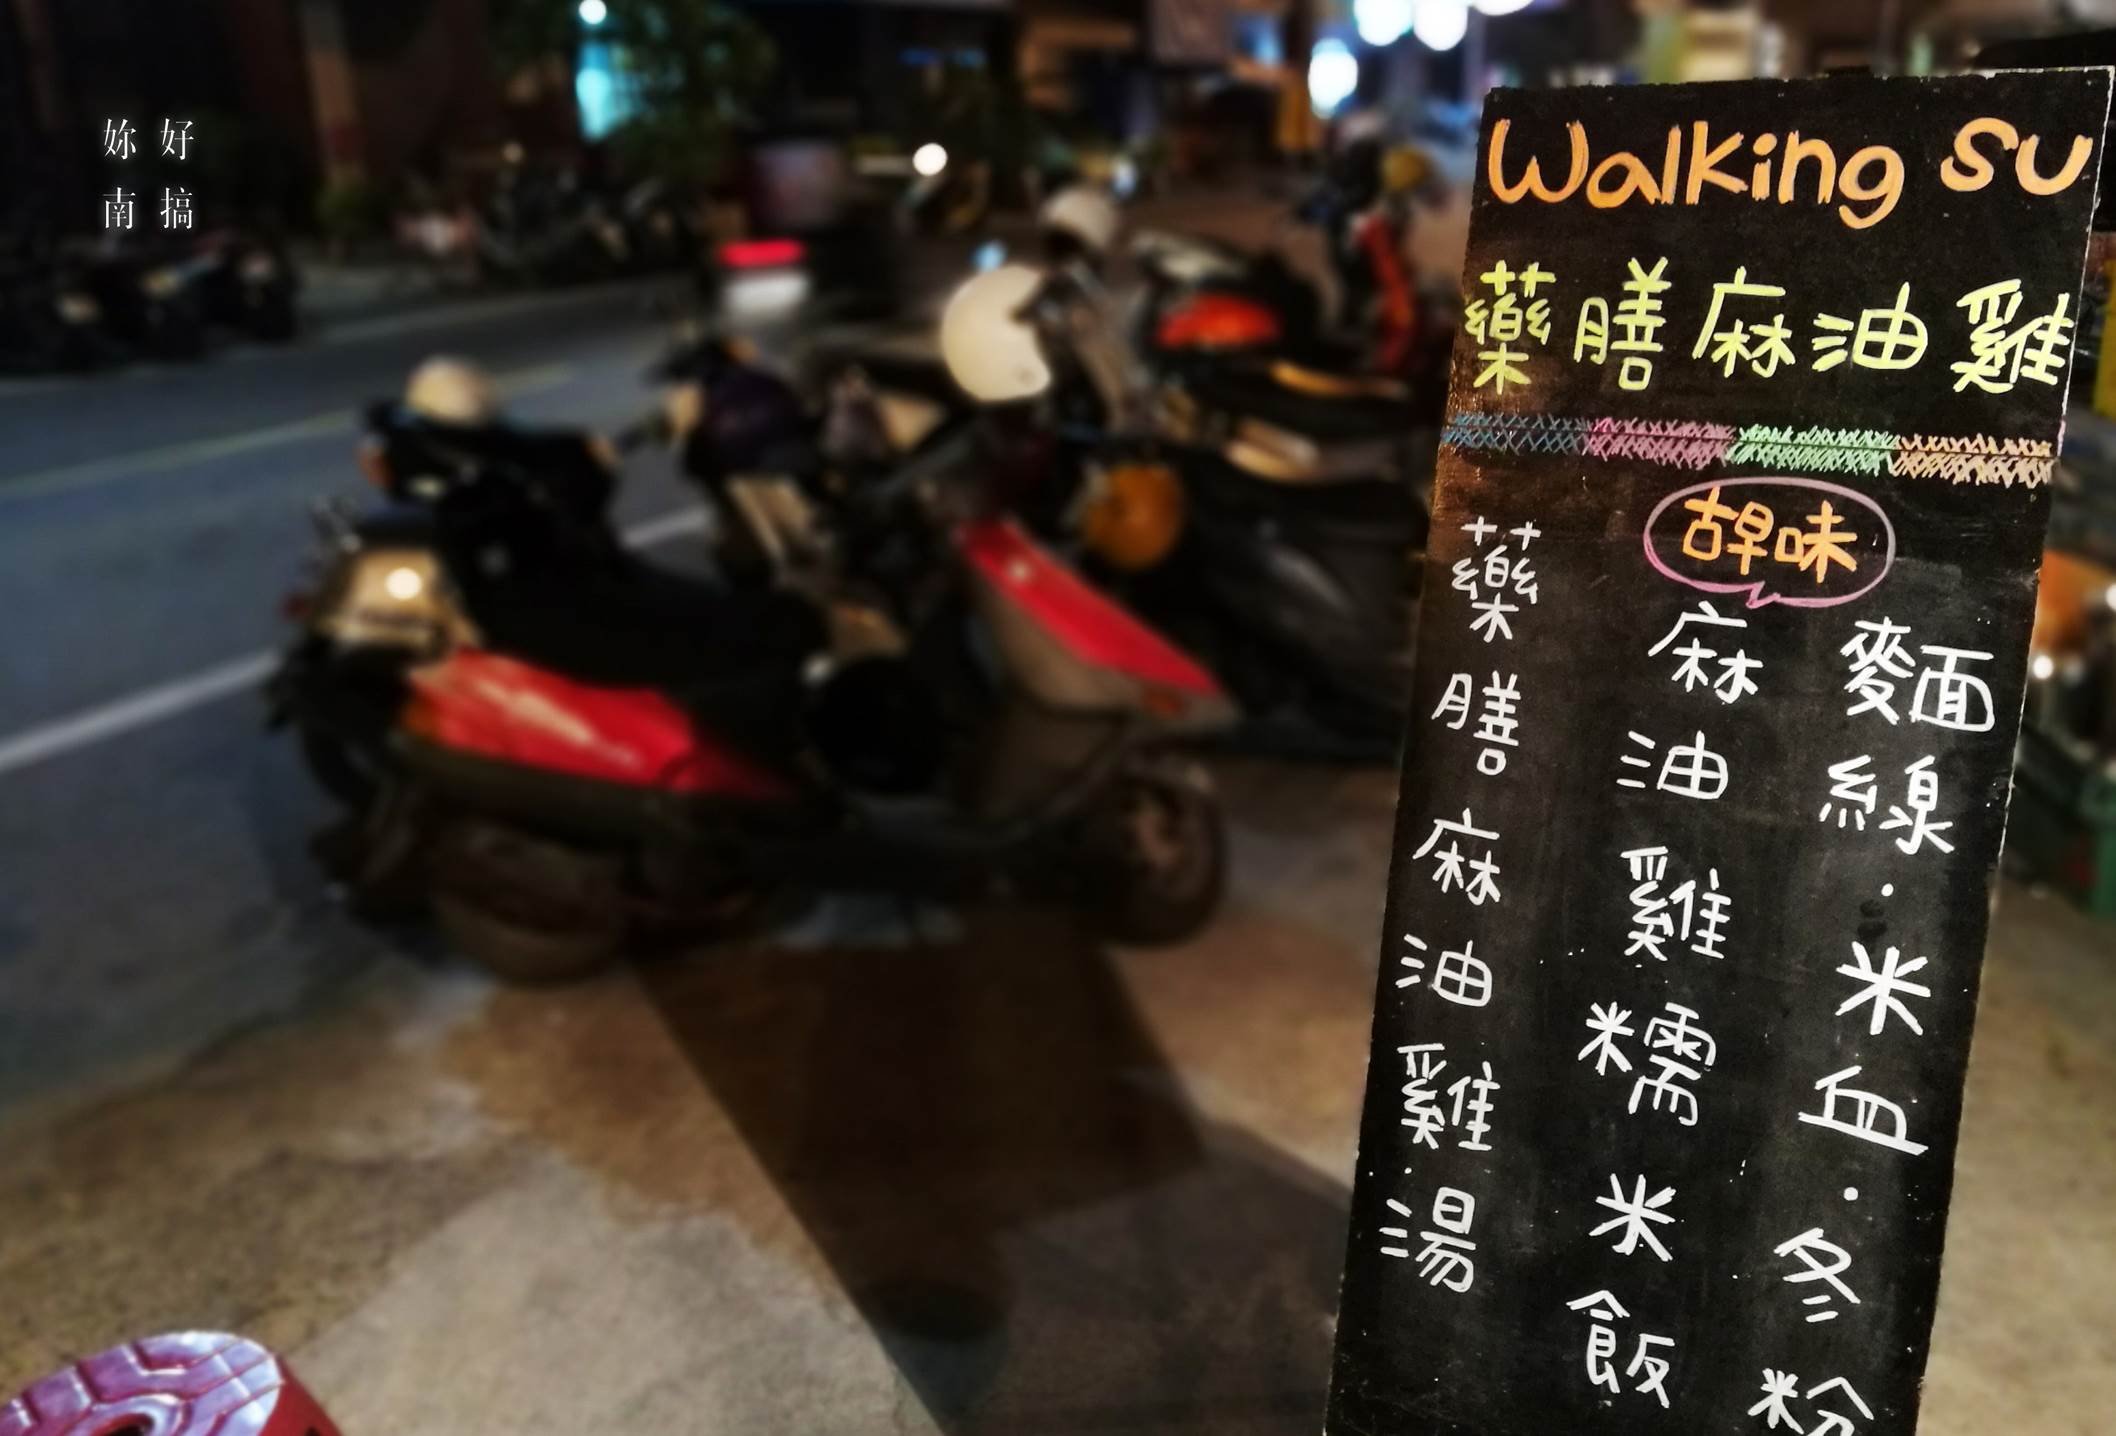 妳好
南搞
Walking SU
藥膳麻油雞
古早味
藥膳麻油雞湯
麻油雞糯米飯
麵線·米血·冬粉